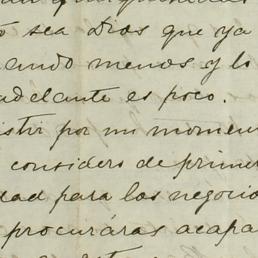 o sea Dios que ya
ando menos y lo
adelante es poco.
istir por un momen
considero de primer
dad para los negocio
procurarás acapa